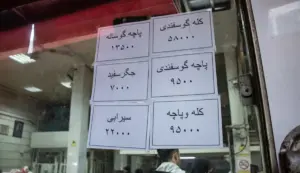 کله گوسفندی
۵۸۰۰۰
پاچه گوساله
۱۳۵۰۰
پاچه گوسفندی
۹۵۰۰
جگرسفید
۷۰۰۰
کله وپاچه
۹۵۰۰۰
سیرابی
۲۲۰۰۰